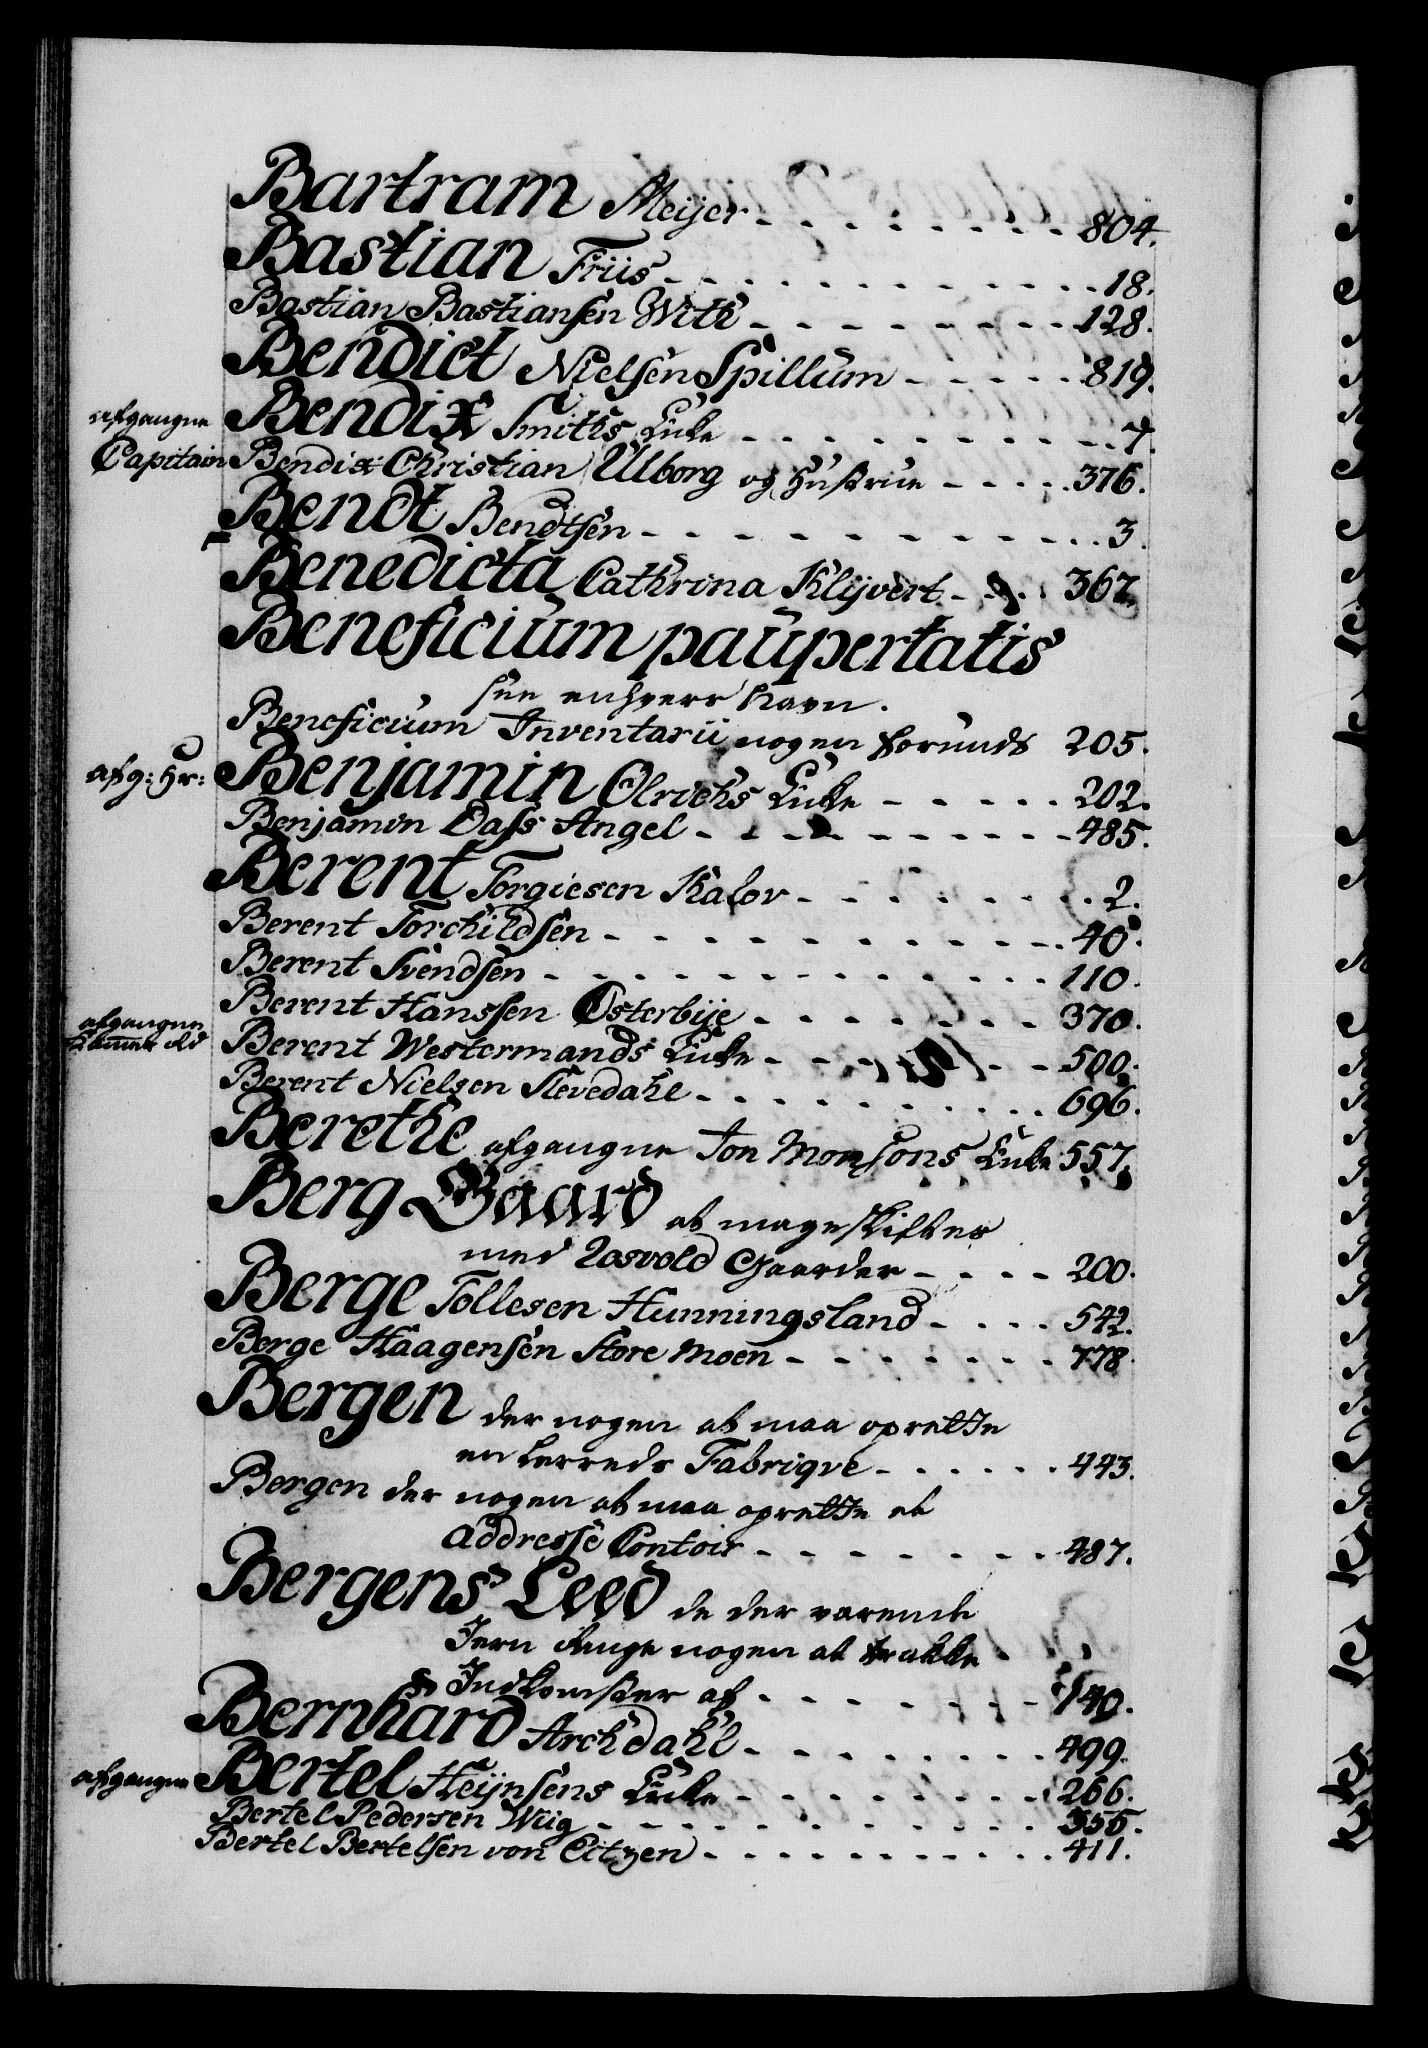 Bartram Meijer - - - - - - - - - 804.
Bastian Friis - - - - - - - - - - - - 18.
Bastian Bastiansen With - - - - - - - - - 128.
Bendict Nielsen Spillum - - - - - 819.
afgangne Bendix Smiths Enke - - - - - - - - - - - 7.
Capitain Bendix Christian Ulborg og Hustrue - - - - - 376.
Bendt Bendtsen - - - - - - - - - - - - - 3.
Benedicta Cathrina Klijvert - - - 367.
Beneficium paupertatis
see enhvers Navn.
Beneficium Inventarii nogen forundt 205.
afg: Hr: Benjamin Olrichs Enke - - - - - - 202.
Benjamin Dass Angel - - - - - - - - - - - 485.
Berent Torgiesen Kalov - - - - - - - - - 2.
Berent Torchildsen - - - - - - - - - - - - - 40.
Berent Svendsen - - - - - - - - - - - - - - 110.
Berent Hanssen Østerbije - - - - - - - - 370.
afgangne Berent Westermands Enke - - - - - - - 500.
Berent Nielsen Slevedahl - - - - - - - - - - 696.
Berethe afgangne Jon Monsons Enke 557.
Berg Gaard at mageskiftes
med Rosvold Gaarder - - - - 200.
Berge Tollesen Hunningsland - - - - 542.
Berge Haagensen Store Moen - - - - - - - - 778.
Bergen der nogen at maa oprette
en Lerreds Fabriqve - - - - - - 443.
Bergen der nogen at maa oprette et
Addresse Contoir - - - - - - - - - 487.
Bergens Leed de der varende
Jern nogen at trække
Indkomster af - - - - - - - - 140.
Bernhard Archdahl - - - - - - - - - 499.
afgangne Bertel Heijnsens Enke - - - - - - - - - 266.
Bertel Pedersen Wiig - - - - - - - - - - - - - 355.
Bertel Bertelsen von Citzen - - - - - - - - - - 411.